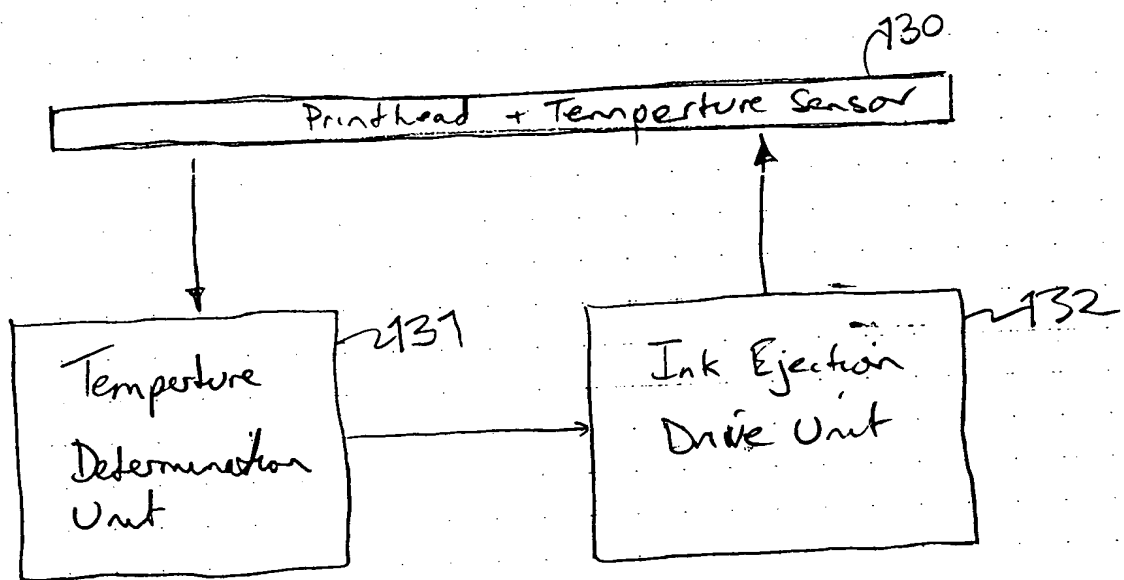 130
Printhead + Temperture Sensor
131
Temperture
Determination
Unit
132
Ink Ejection
Drive Unit